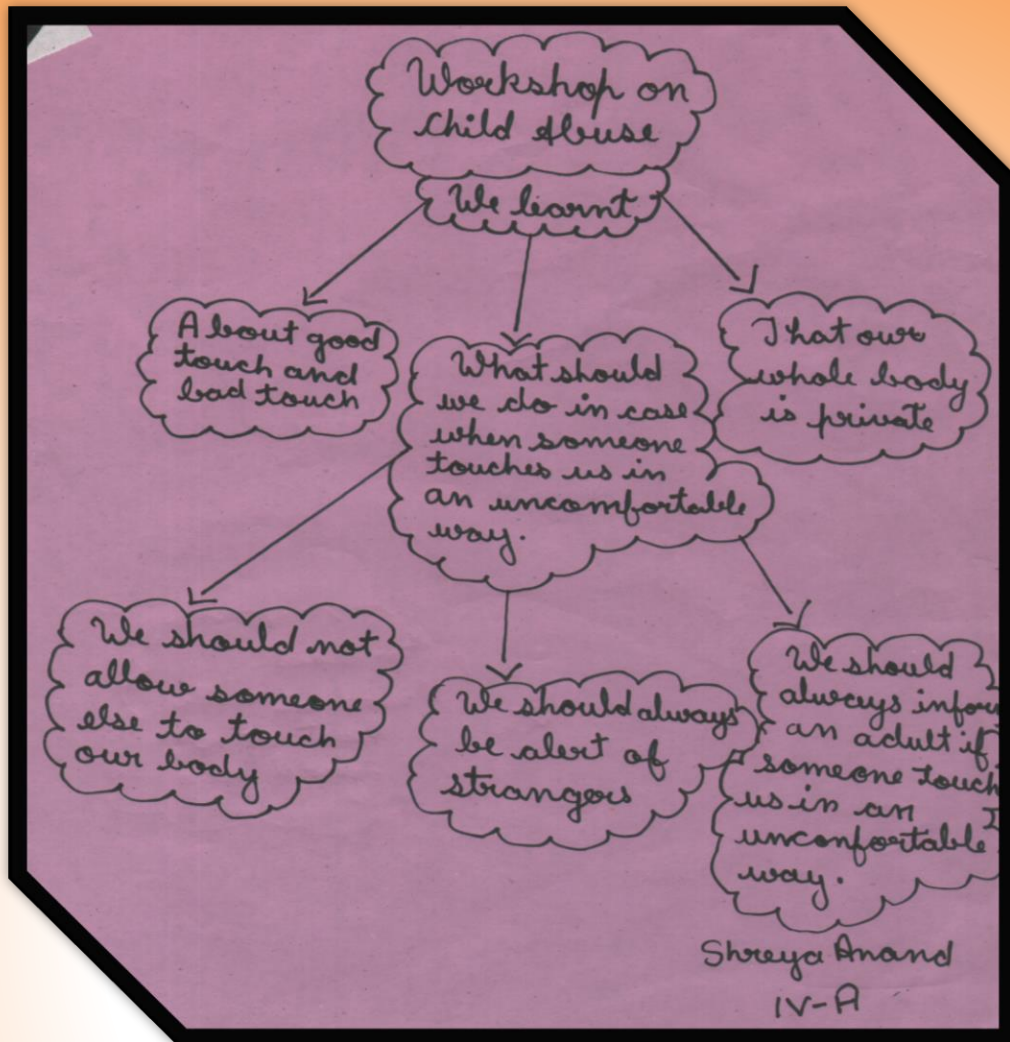 Workshop on
Child Abuse
We learnt
About good
touch and
bad touch
What should
we do in case
when someone
touches us in
an uncomfortable
way.
That our
whole body
is private
We should not
allow someone
else to touch
our body
We should always
be alert of
strangers
We should
always infor
an adult if
someone touch
us in an
unconfortable
way.
Shreya Anand
IV-A